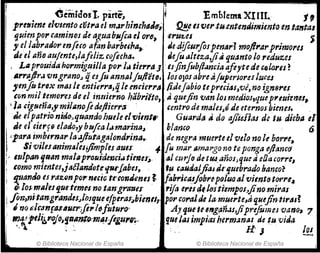 Gemidos I. parte,
preuiene el viento côtra el mar hinchado,
quien por caminos de agua busca el oro,
y el labrador en seco afan barbecha,
de el año ausente, la feliz cosecha.
La prouida hormiguilla por la tierra 3
arrastra vn grano, q̃ es su annal sustẽto,
yen su trox mas le entierra, q̃ le encierra
con mil temores de el inuierno hâbriẽto,
la cigueña, y milano se destierra
de el patrio nido, quando huele el viento
de el cierço elado, y busca la marina,
para inuernar la astuta golondrina.
Si viles animales, simples aues 4
culpan quan mala prouidencia tienes,
como mientes, jactandote que sabes,
quando es razon por necio te condenes?
ô los males que temes no tan graues
son, ni tan grandes, los que esperas, bienes,
ô no alcanças a ver, ser lo futuro
mas peligroso, quanto mas seguro.
Emblema XIIII. 59
Que es ver tu entendimiento en tantas
cruezes 5
de discursos penar? mostrar primores
de su alteza, si à quanto lo reduzes
es sin substancia afeyte de colores?
los ojos abre à superiores luces
si de sabio te precias, vè, no ignores
à que fin van los medios, que preuienes,
centro de males, ô de eternos bienes.
Guarda à do assestas de tu dicha el
blanco 6
de negra muerte el velo no le borre,
su mar amargo no te ponga estanco
al curso de tus años, que à ella corre,
tu caudal sias de quebrado banco?
fabricas sobre poluo al viento torre,
risa eres de los tiempos, si no miras
por coral de la muerte, â que fin tiras?
Ay que te engañas, si presumes vano, 7
que las impias hermanas de tu vida
H 3 los
© Biblioteca Nacional de España
© Biblioteca Nacional de España